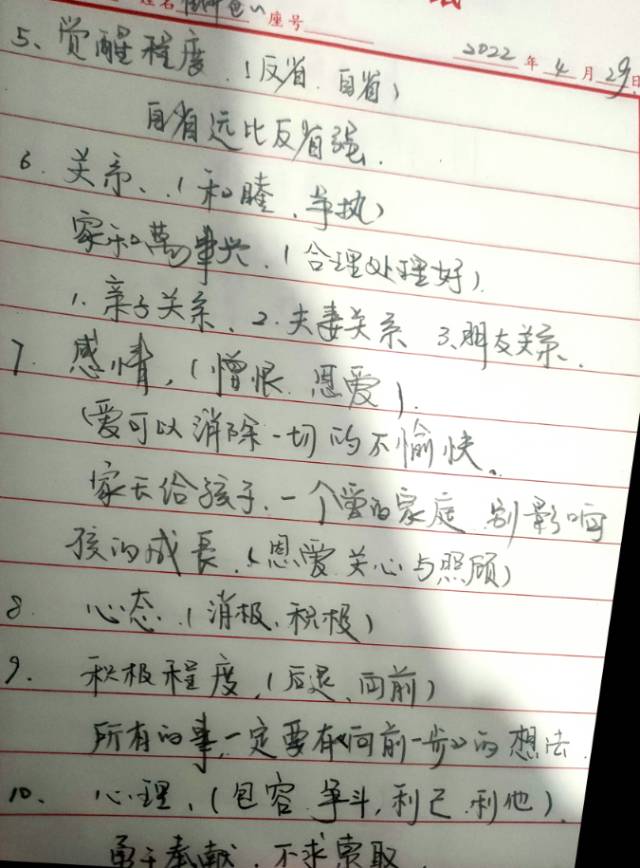 姓名 座号
2022年4月29日
5、觉醒程度.（反省.自省）
自省远比反省强.
6.关系、（和睦、争执）
家和萬事兴.（合理处理好）.
1.亲子关系、2.夫妻关系 3.朋友关系.
7.感情，（憎恨.恩爱）.
（爱可以消除一切的不愉快。
家长给孩子.一个爱的家庭 别影响
孩的成長.（恩爱.关心与照顾）
8.心态.（消极.积极）
9.积极程度，（后退、向前）
所有的事，一定要有《向前一步》的想法.
10、心理，（包容.争斗，利己.利他）.
勇于奉献.不求索取